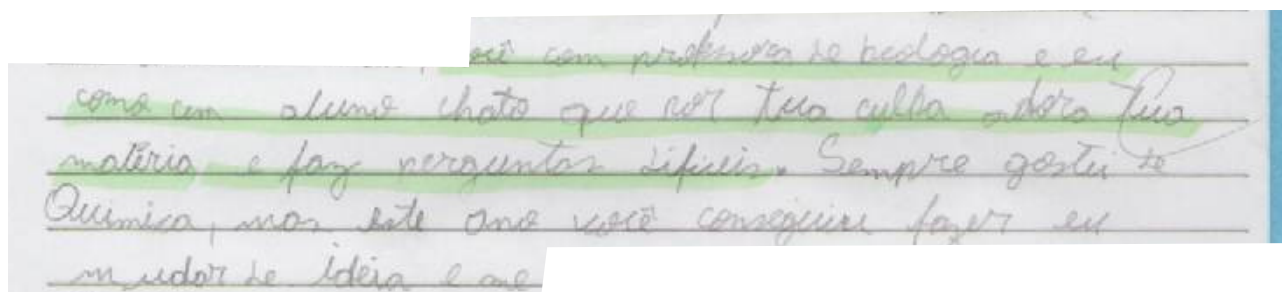 você com professora de biologia e eu
como um aluno chato que por tua culpa adora tua
matéria e faz perguntas dificeis. Sempre gostei de
Quimica, mas este ano você conseguiu fazer eu
mudar de idéia e me